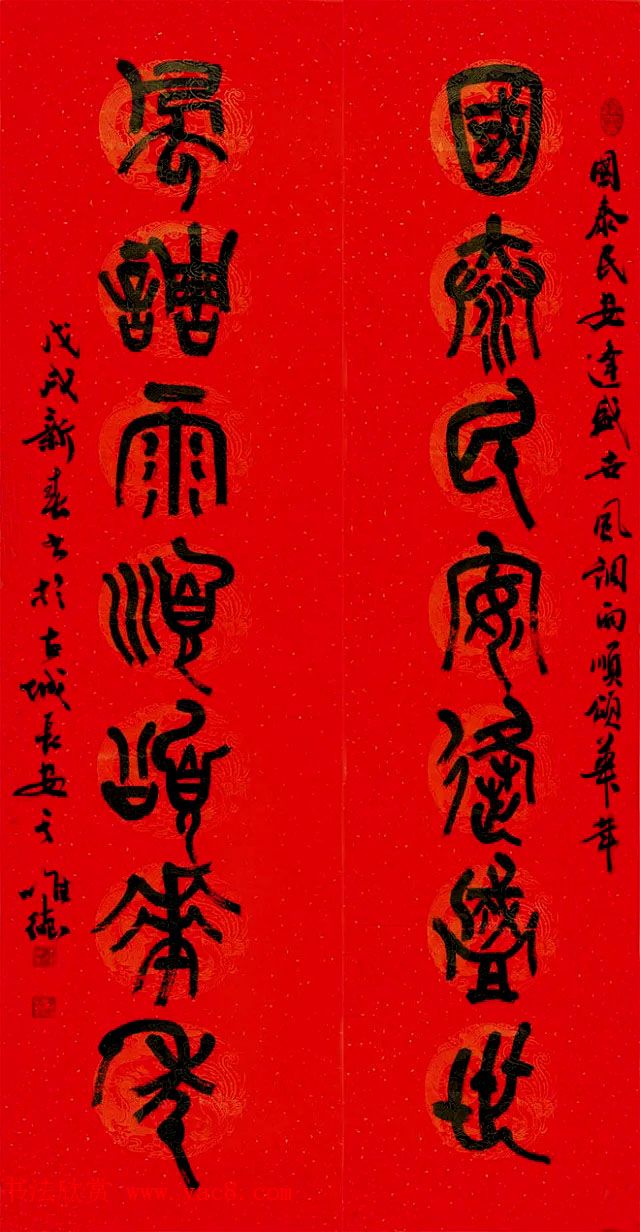 國泰民安逢盛世風調雨順頌華年
國泰民安逢盛世
風調雨順頌華年
戊戌新春書於古城長安王唯德
书法欣赏 www.yac8.com